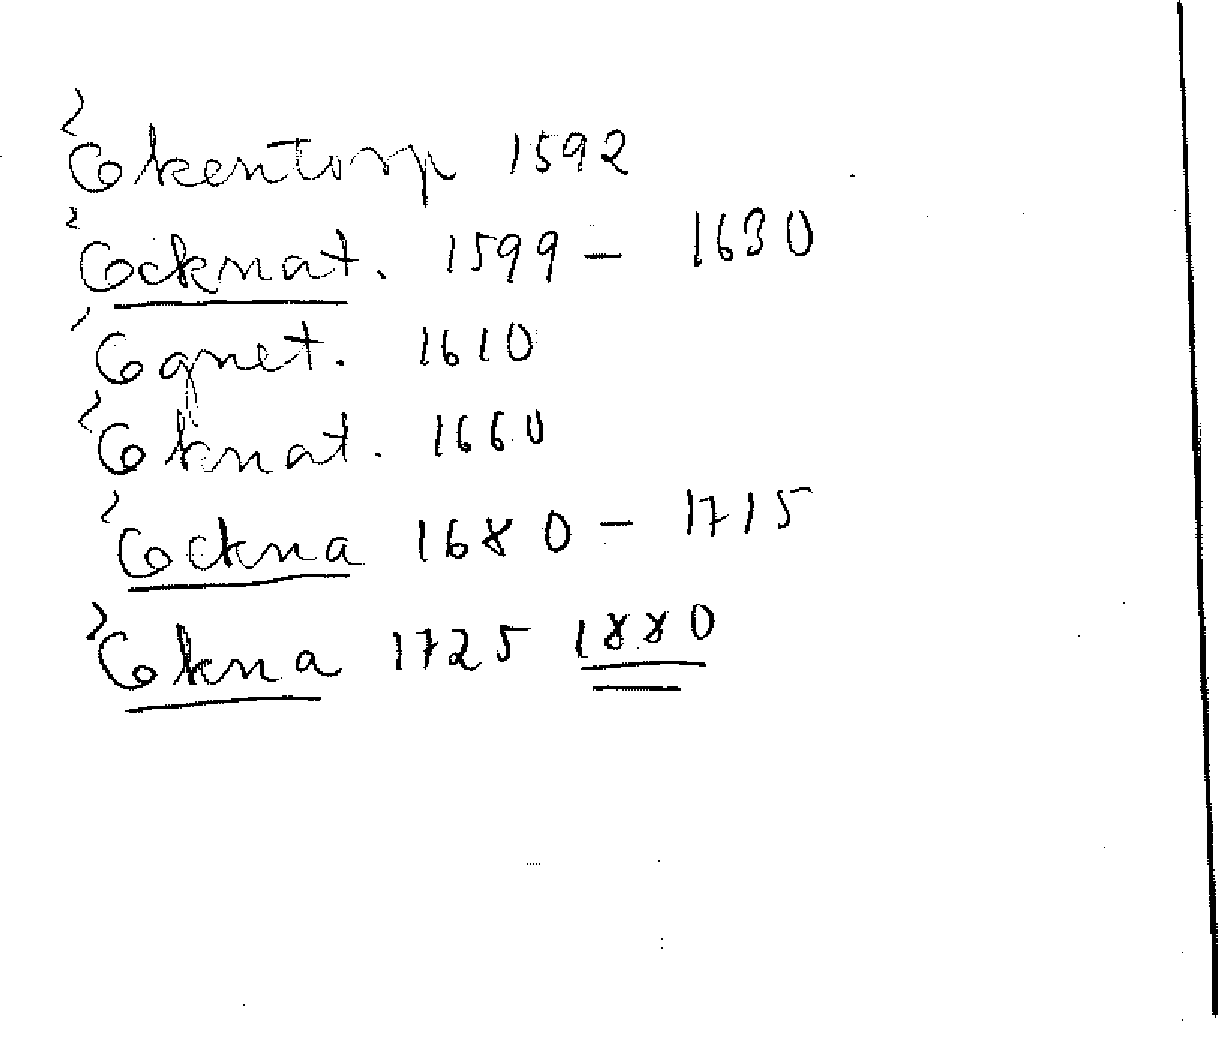 Ökentorp 1592
Öcknat. 1599 – 1630
Öqnet. 1610
Öknat. 1660
Öckna 1680 – 1715
Ökna 1725 1880